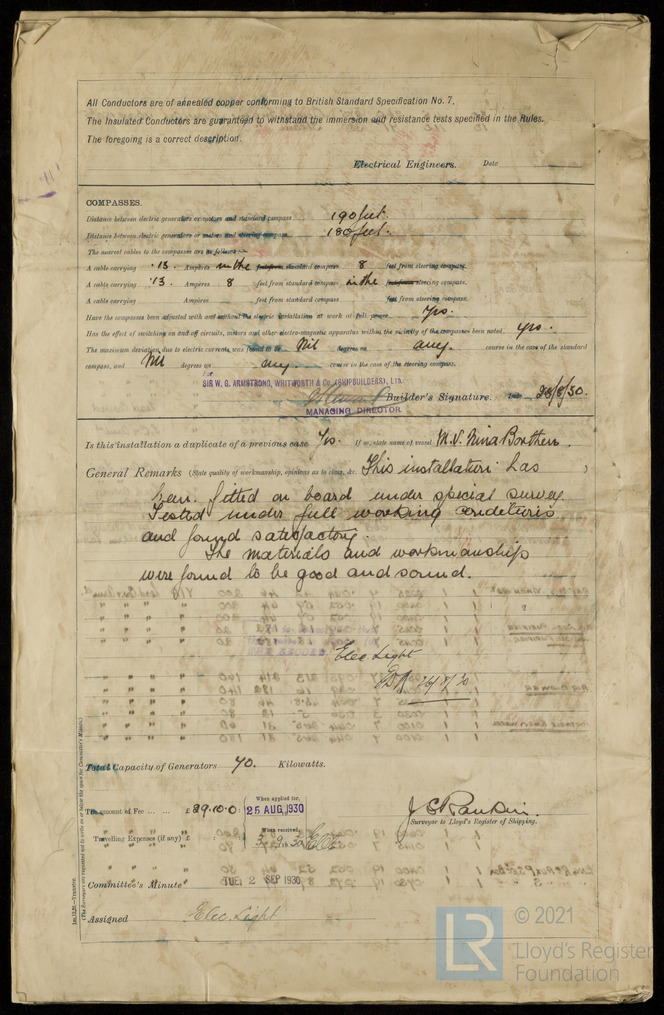 All Conductors are of annealed copper conforming to British Standard Specification No. 7.
The Insulated Conductors are guaranteed to withstand the immersion and resistance tests specified in the Rules.
The foregoing is a correct description.
Electrical Engineers. Date
COMPASSES.
Distance between electric generators or motors and standard compass 190 feet.
Distance between electric generators or motors and steering compass 180 feet.
The nearest cables to the compasses are as follows:—
A cable carrying .13. Ampères in the feet from standard compass 8 feet from steering compass.
A cable carrying .13. Ampères 8 feet from standard compass in the feet from steering compass.
A cable carrying Ampères feet from standard compass feet from steering compass.
Have the compasses been adjusted with and without the electric installation at work at full power Yes.
Has the effect of switching on and off circuits, motors and other electro-magnetic apparatus within the vicinity of the compasses been noted. Yes.
The maximum deviation due to electric currents was found to be Nil degrees on any. course in the case of the standard
compass, and Nil degrees on any. course in the case of the steering compass.
For
SIR W. G. ARMSTRONG, WHITWORTH & Co. (SHIPBUILDERS), LTD.
Builder's Signature. Date 23/8/30.
MANAGING DIRECTOR
Is this installation a duplicate of a previous case Yes. If so, state name of vessel M.V. Nina Borthen.
General Remarks (State quality of workmanship, opinions as to class, &c. This installation has
been fitted on board under special survey.
Tested under full working conditions
and found satisfactory.
The materials and workmanship
were found to be good and sound.
Elec Light
26/8/30
Total Capacity of Generators 40. Kilowatts.
The amount of Fee ... ... £39.10.0. When applied for, 25 AUG 1930
J C Rankin
Surveyor to Lloyd's Register of Shipping.
Travelling Expenses (if any) £ When received,
Committee's Minute TUE. 2 SEP 1930
Assigned Elec. Light
(The Surveyors are requested not to write on or below the space for Committee's Minute.)
LR
© 2021
Lloyd's Register
Foundation